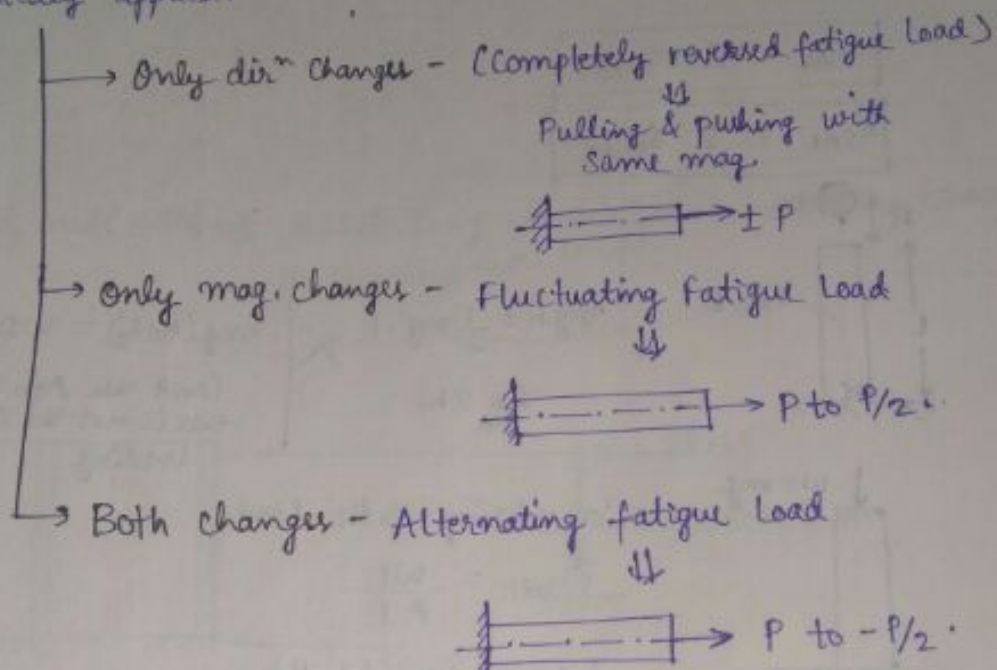 → Only dirⁿ changes - (Completely reversed fatigue load)
⇓
Pulling & pushing with
same mag.
→ ± P
→ Only mag. changes - Fluctuating Fatigue Load
⇓
→ P to P/2.
→ Both changes - Alternating fatigue Load
⇓
→ P to - P/2.